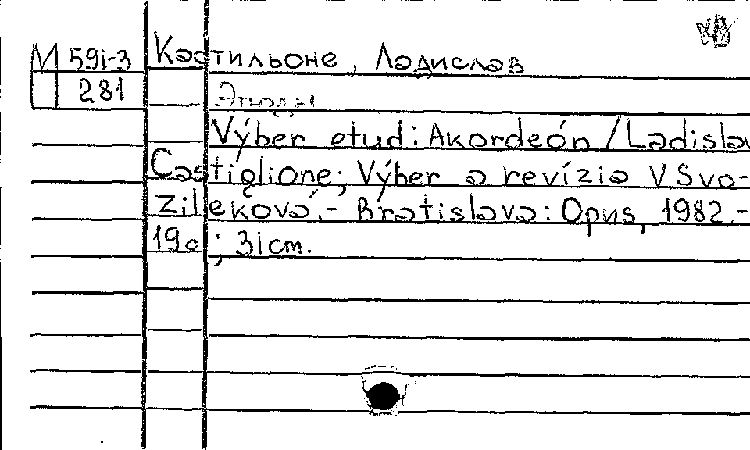 М 59i-3 Кастильоне, Ладислав
281 Этюды
Výber etud: Akordeón / Ladislav
Castiglione; Výber a revízia V Sva-
zileková.- Bratislava: Opus, 1982.-
19c; 31cm.